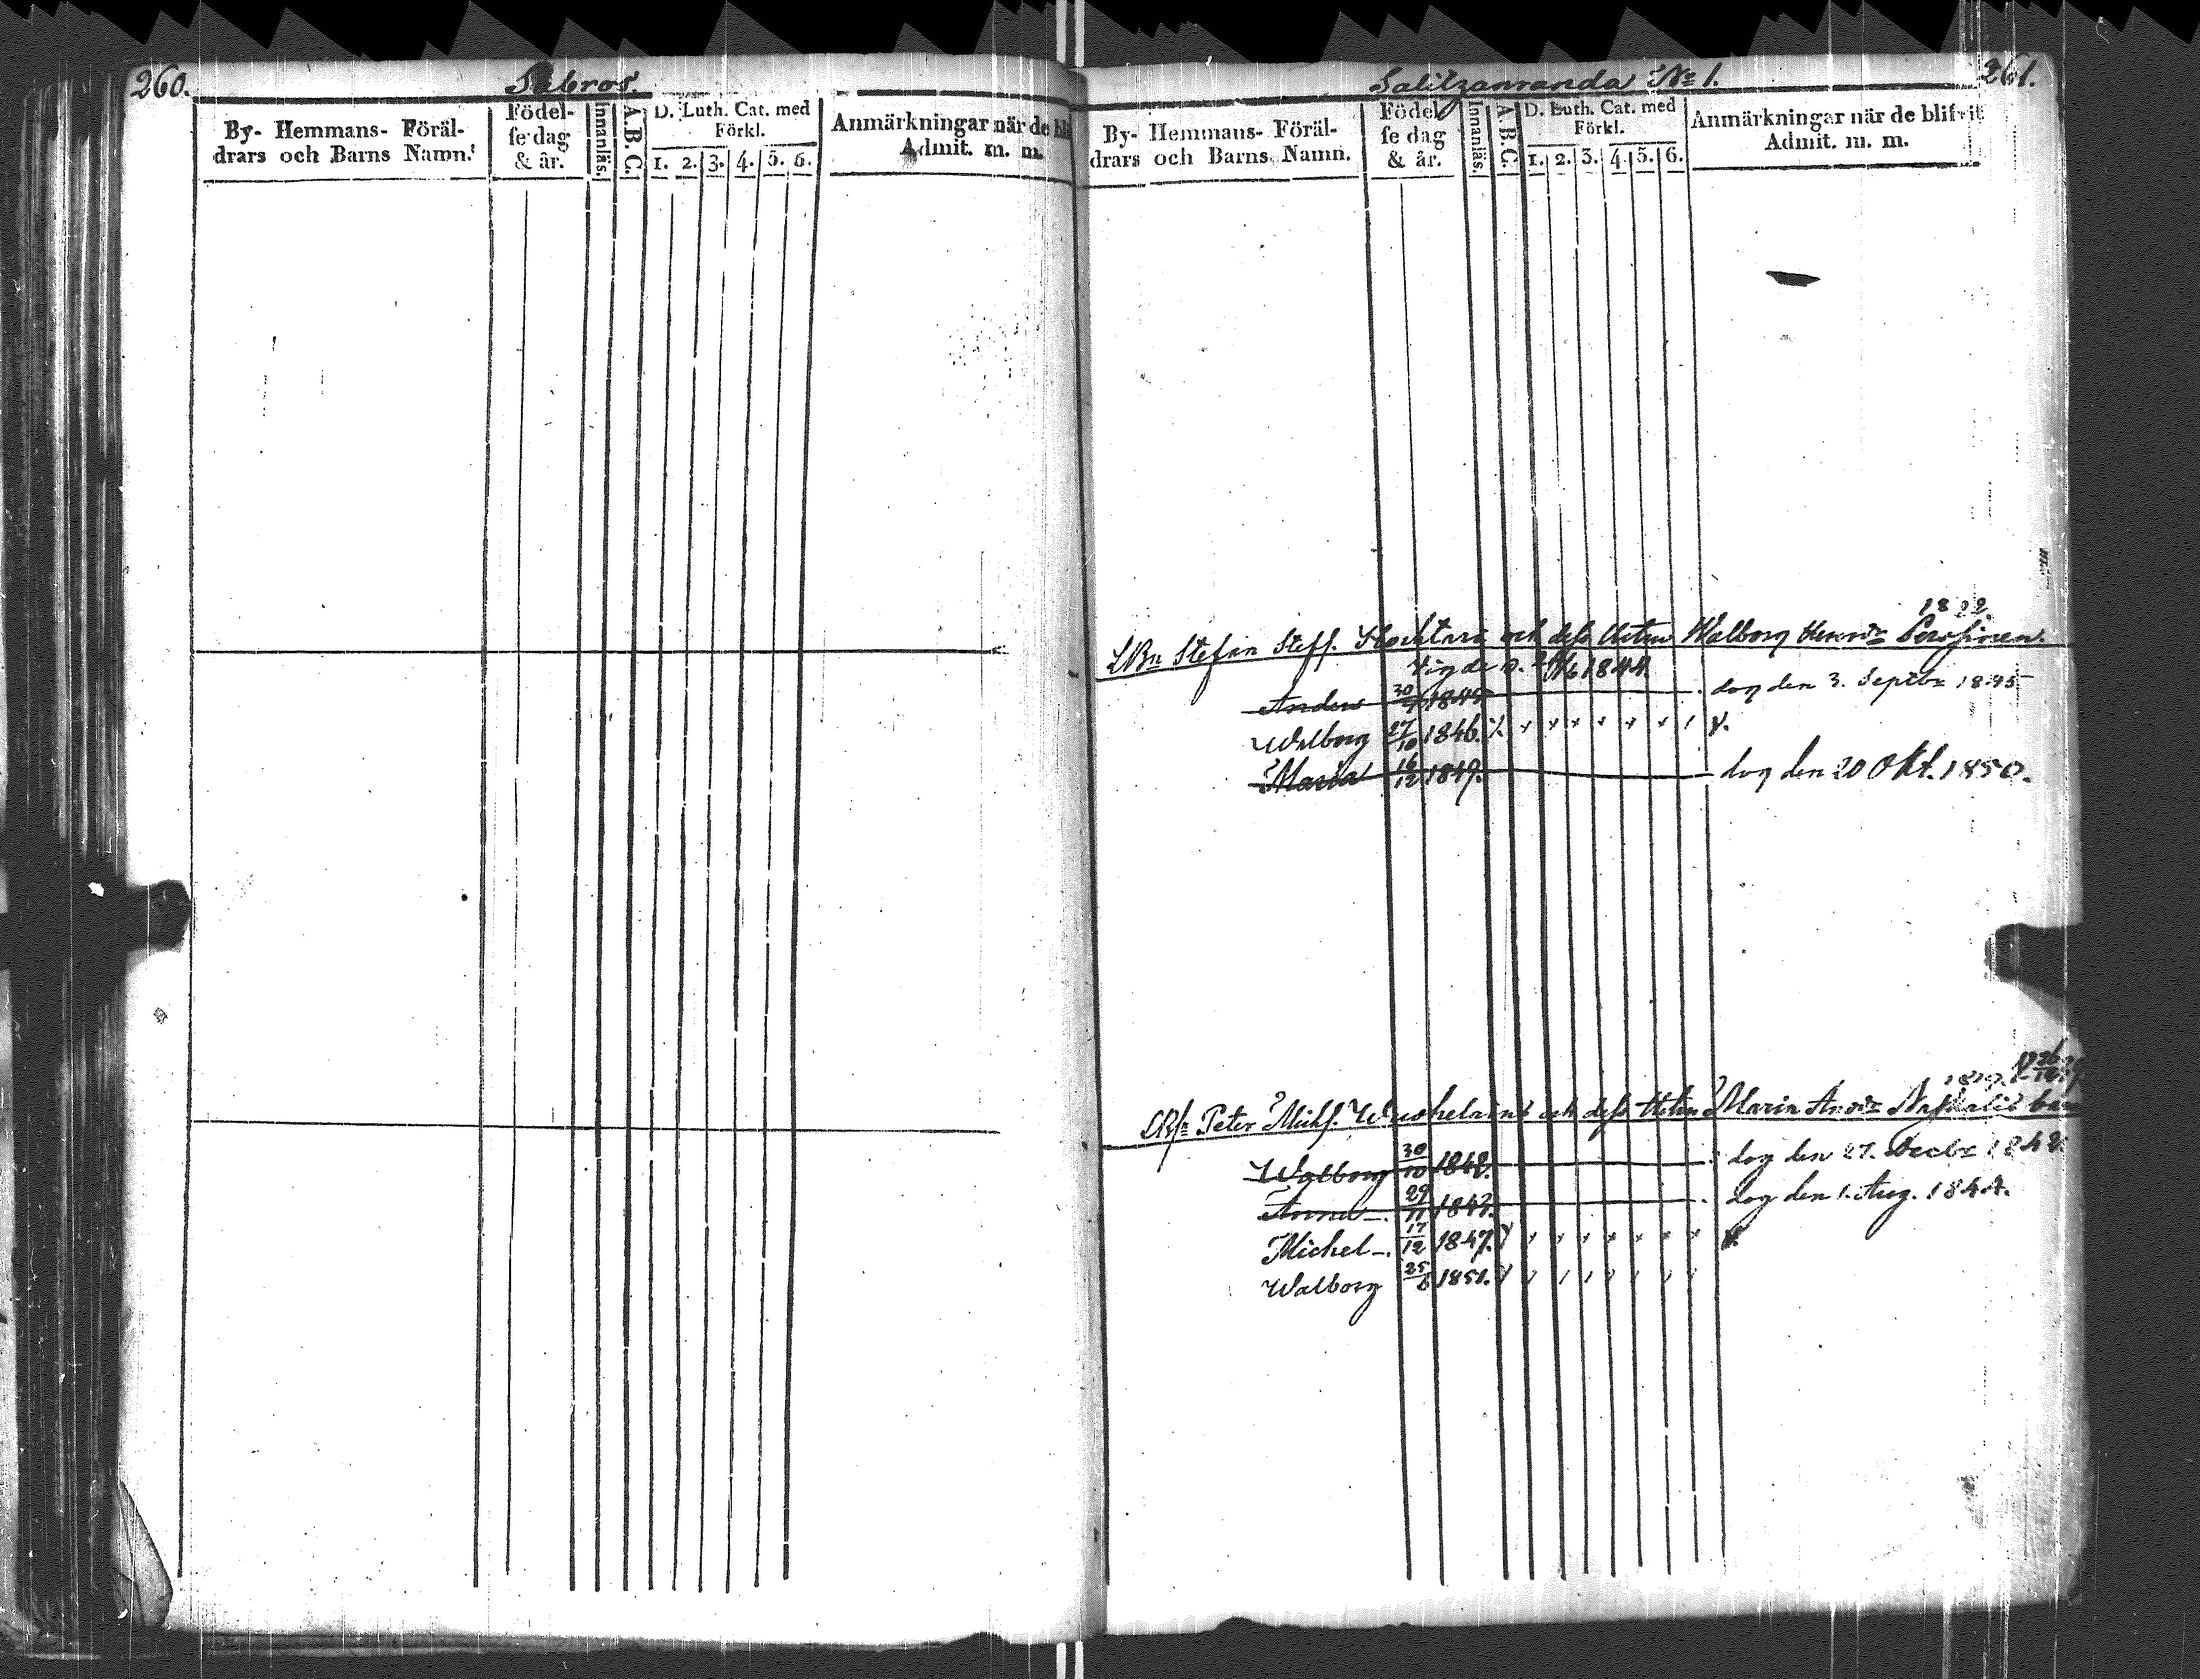 260.
Sabros.
By- Hemmans- Föräl-
drars och Barns Namn.
Födel-
se dag
& år.
Innanläs.
A. B. C.
D. Luth. Cat. med
Förkl.
1. 2. 3. 4. 5. 6.
Anmärkningar när de bli
Admit. m. m.
Salitzanranda No 1.
261.
By- Hemmans- Föräl-
drars och Barns Namn.
Födel
se dag
& år.
Innanläs.
A. B. C.
D. Luth. Cat. med
Förkl.
1. 2. 3. 4. 5. 6.
Anmärkningar när de blifvit
Admit. m. m.
Stefan Steff. och dess Walborg
1844.
Anders 30 1845 dog den 3. Septbr 1845
Walborg 27/10 1846.
Maria 16/12 1849. dog den 20 Okt. 1850.
Peter Michs. och dess Maria Andrs
Walborg 30/10 1842. dog den 27. Decbr 1842.
Anna 29/11 1843. dog den 1. Aug. 1844.
Michel 17/12 1847.
Walborg 25 1851.